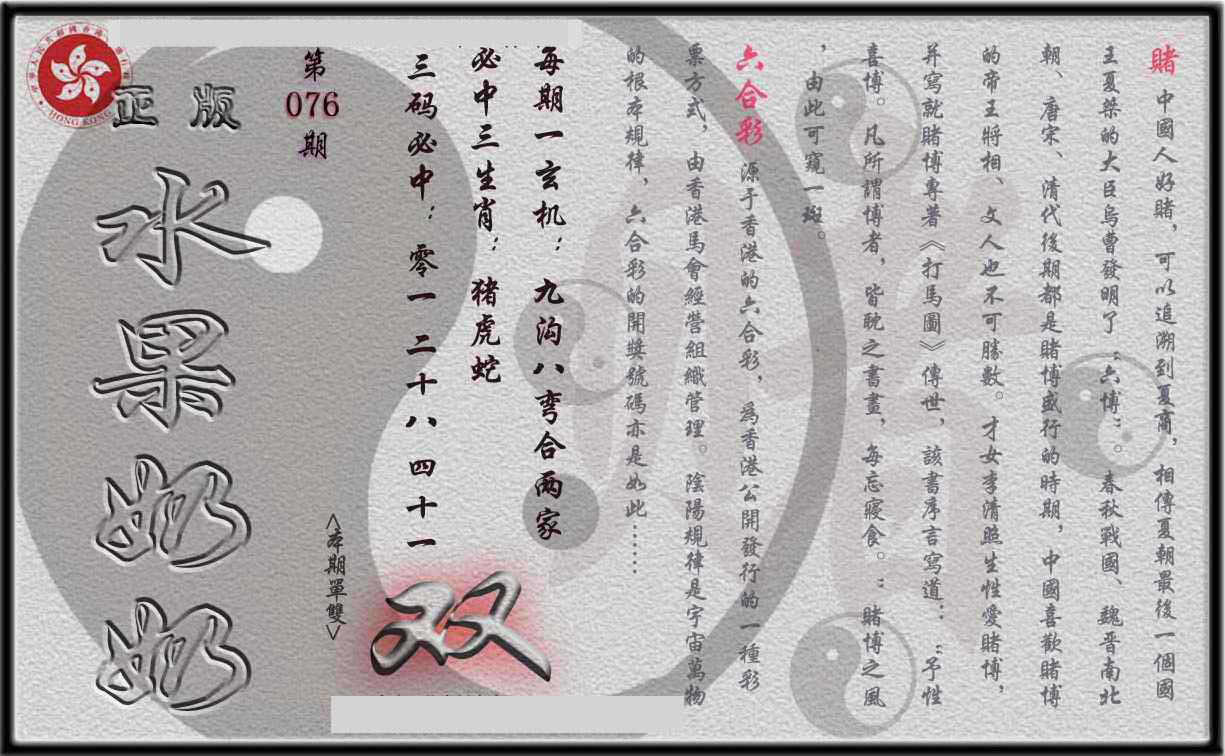 賭 中國人好賭，可以追溯到夏商，相傳夏朝最後一個國
王夏桀的大臣烏曹發明了“六博”。春秋戰國、魏晋南北
朝、唐宋、清代後期都是賭博盛行的時期，中國喜歡賭博
的帝王將相、文人也不可勝數。才女李清照生性愛賭博，
并寫就賭博專著《打馬圖》傳世，該書序言寫道：“予性
喜博。凡所謂博者，皆耽之書畫，每忘寢食。”賭博之風
，由此可窺一斑。
六合彩 源于香港的六合彩，爲香港公開發行的一種彩
票方式，由香港馬會經營組織管理。陰陽規律是宇宙萬物
的根本規律，六合彩的開獎號碼亦是如此……
每期一玄机：九沟八弯合两家
必中三生肖：猪虎蛇
三码必中：零一二十八四十一
双
<本期單雙>
第
076
期
正版
水果奶奶
HONG KONG